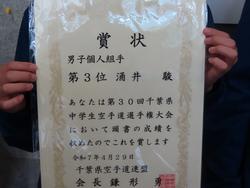 賞状
男子個人組手
第3位 涌井 駿
あなたは第30回千葉県
中学生空手道選手権大会
において頭書の成績を
収めたのでこれを賞します
令和7年4月29日
千葉県空手道連盟
会長 鎌形 勇